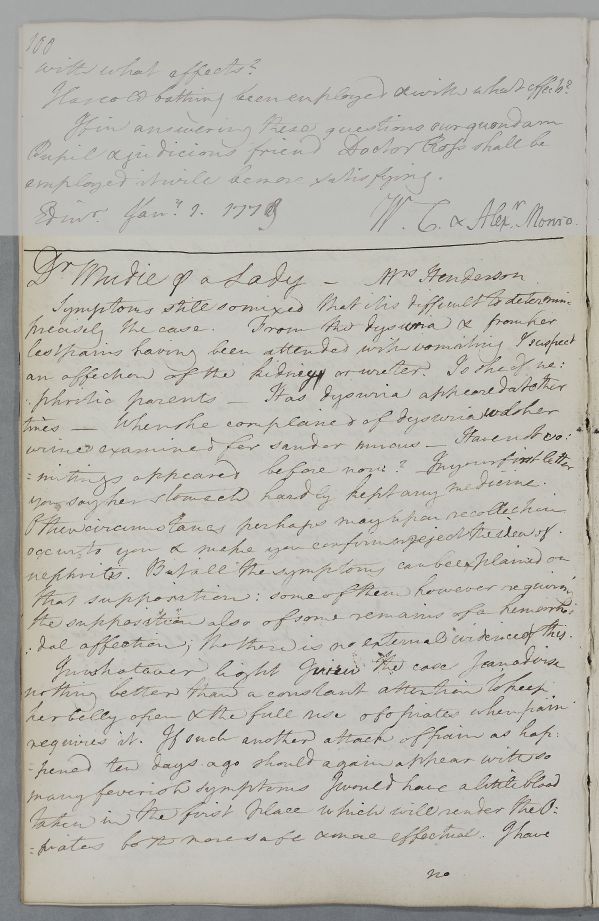 100
with what effects?
Has cold bathing been employed & with what effects?
If in answering these questions our quondam
Pupil & judicious friend Doctor Ross shall be
employed it will be more satisfying.
Edinr. Janry 9. 1773 W. C. & Alexr. Monro
Dr Mudie for a Lady – Mrs Henderson
Symptoms still so mixed that it is difficult to determin
precisely the case. From the dysuria & from her
last pains having been attended with vomiting I suspect
an affection of the kidney or ureter. Is she of ne:
:phritic parents – Has dysuria appeared at other
times – When she complained of dysuria was her
urine examined for sand or mucus – Have not vo:
:mitings appeared before now? In your first letter
you say her stomach hardly kept any medicine.
Other circumstances perhaps may upon recollection
occur to you & make you confirm or reject the idea of
nephritis. But all the symptoms can be explained on
that supposition: some of them however requiring
the supposition also of some remains of a hemorrhoi
:dal affection; tho there is no external evidence of this.
In whatever light I view the case I can advise
nothing better than a constant attention to keep
her belly open & the full use of opiates when pain
requires it. If such another attack of pain as hap:
:pened ten days ago should again appear with so
many feverish symptoms I would have a little blood
taken in the first place which will render the O:
:piates both more safe & more effectual. I have
no